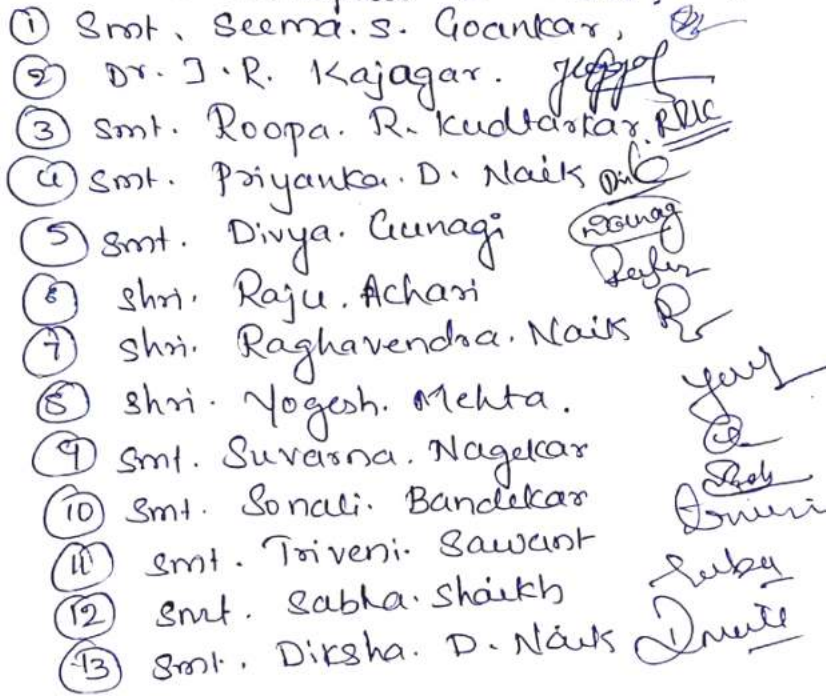 ① Smt. Seema. S. Goankar,
② Dr. J. R. Kajagar.
③ Smt. Roopa. R. Kudtarkar. RRK
④ Smt. Priyanka. D. Naik
⑤ Smt. Divya. Gunagi
⑥ Shri. Raju. Achari
⑦ Shri. Raghavendra. Naik
⑧ Shri. Yogesh. Mehta.
⑨ Smt. Suvarna. Nagekar
⑩ Smt. Sonali. Bandekar
⑪ Smt. Triveni. Sawant
⑫ Smt. Sabha. Shaikh
⑬ Smt. Diksha. D. Naik